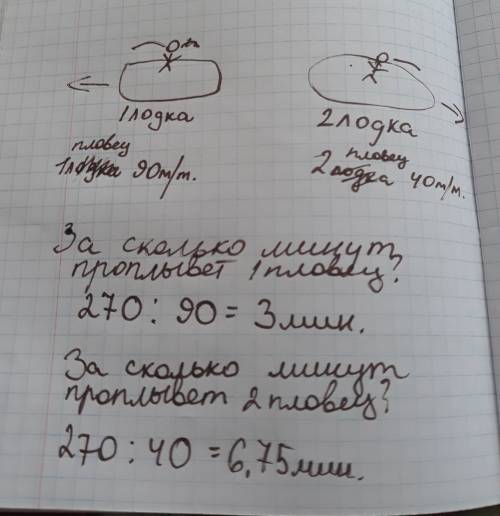 1 лодка
2 лодка
пловец
1 90м/т.
пловец
2 40м/т.
За сколько минут
проплывет 1 пловец?
270 : 90 = 3 мин.
За сколько минут
проплывет 2 пловец?
270 : 40 = 6,75 мин.